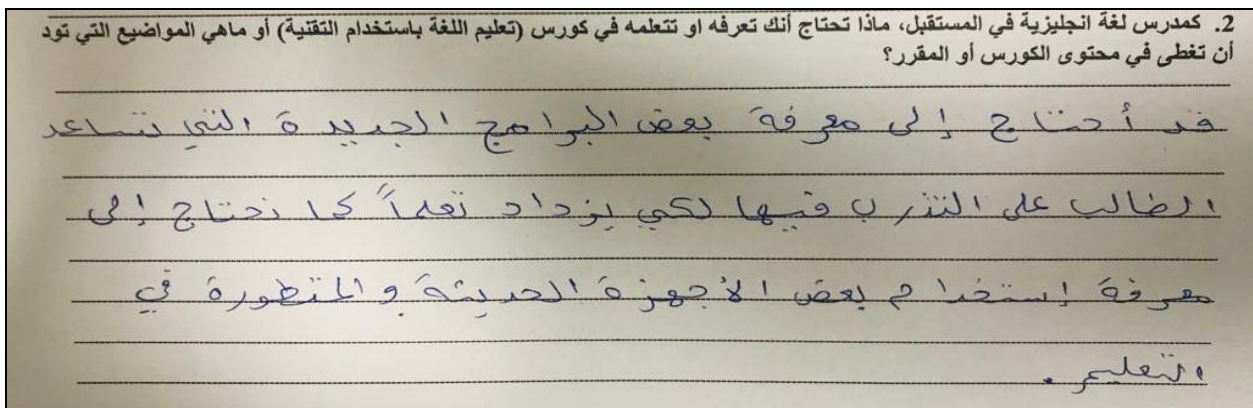 2. كمدرس لغة انجليزية في المستقبل، ماذا تحتاج أنك تعرفه او تتعلمه في كورس (تعليم اللغة باستخدام التقنية) أو ماهي المواضيع التي تود
أن تغطى في محتوى الكورس أو المقرر؟
قد أحتاج إلى معرفة بعض البرامج الجديدة التي تساعد
الطالب على التدرب فيها لكي يزداد تعلماً كما نحتاج إلى
معرفة إستخدام بعض الأجهزة الحديثة والمتطورة في
التعليم.